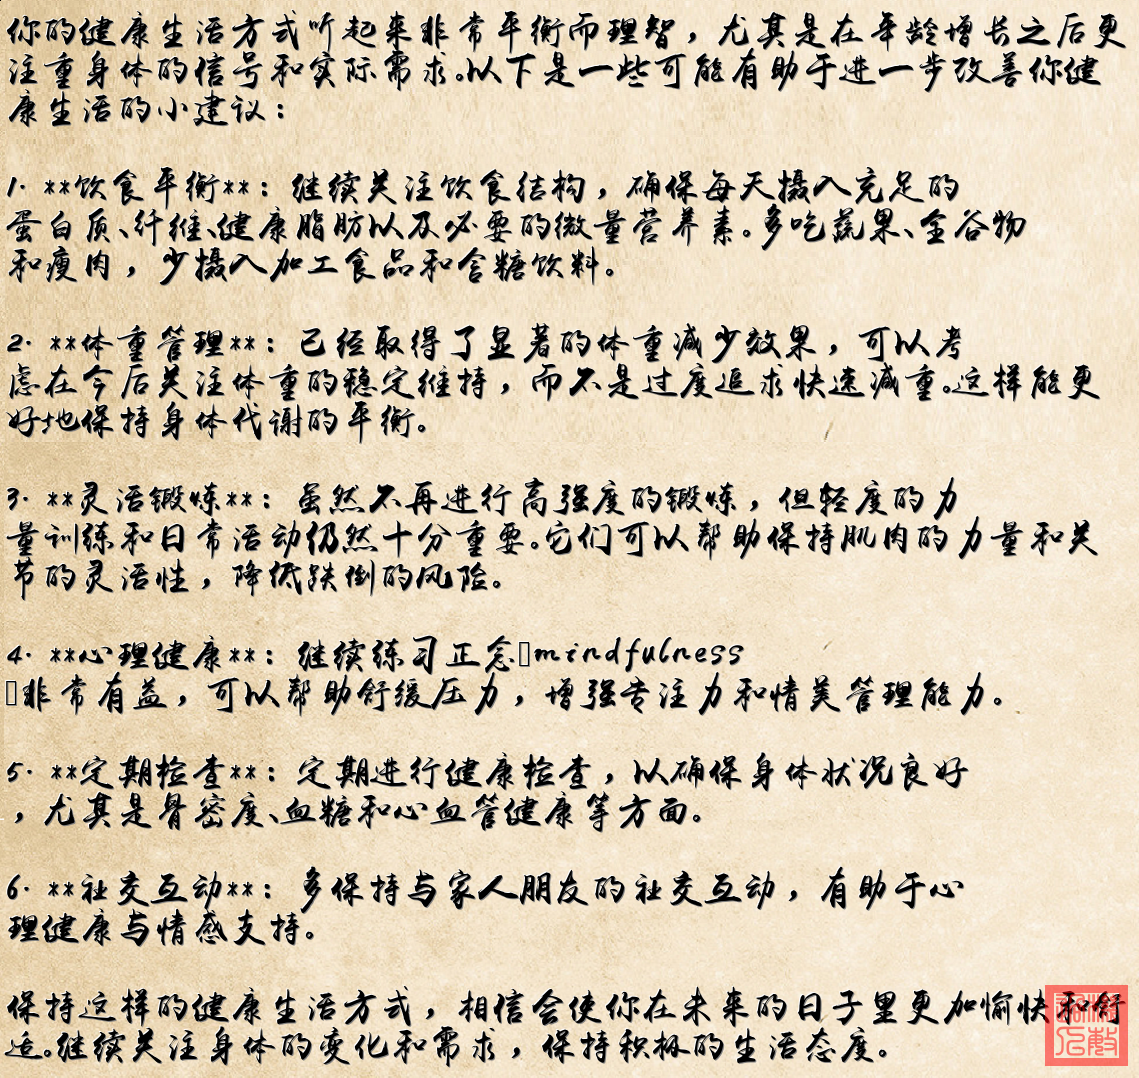 你的健康生活方式听起来非常平衡而理智，尤其是在年龄增长之后更
注重身体的信号和实际需求。以下是一些可能有助于进一步改善你健
康生活的小建议：
1. **饮食平衡**：继续关注饮食结构，确保每天摄入充足的
蛋白质、纤维、健康脂肪以及必要的微量营养素。多吃蔬果、全谷物
和瘦肉，少摄入加工食品和含糖饮料。
2. **体重管理**：已经取得了显著的体重减少效果，可以考
虑在今后关注体重的稳定维持，而不是过度追求快速减重。这样能更
好地保持身体代谢的平衡。
3. **灵活锻炼**：虽然不再进行高强度的锻炼，但轻度的力
量训练和日常活动仍然十分重要。它们可以帮助保持肌肉的力量和关
节的灵活性，降低跌倒的风险。
4. **心理健康**：继续练习正念□mindfulness
□非常有益，可以帮助舒缓压力，增强专注力和情美管理能力。
5. **定期检查**：定期进行健康检查，以确保身体状况良好
，尤其是骨密度、血糖和心血管健康等方面。
6. **社交互动**：多保持与家人朋友的社交互动，有助于心
理健康与情感支持。
保持这样的健康生活方式，相信会使你在未来的日子里更加愉快和舒
适。继续关注身体的变化和需求，保持积极的生活态度。